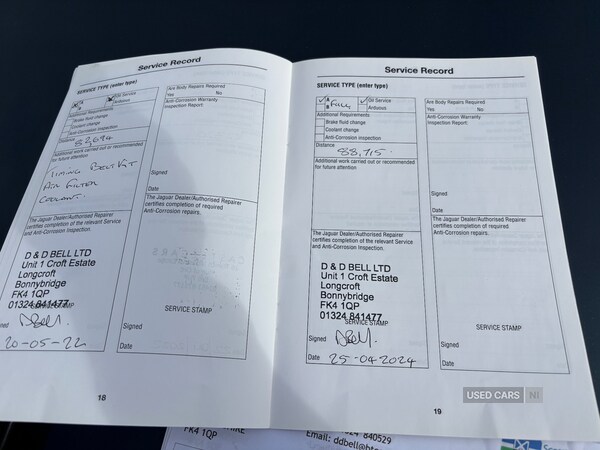 Service Record
SERVICE TYPE (enter type)
A
B
Oil Service
Antivirus
Additional Requirements
Brake fluid change
Coolant change
Anti-Corrosion inspection
Distance
82,694
Additional work carried out or recommended
for future attention
TIMING BELT KIT
AIR FILTER
COOLANT.
The Jaguar Dealer/Authorised Repairer
certifies completion of the relevant Service
and Anti-Corrosion Inspection.
D & D BELL LTD
Unit 1 Croft Estate
Longcroft
Bonnybridge
FK4 1QP
01324 841477
SERVICE STAMP
Signed
DBell.
20-05-22
Are Body Repairs Required
Yes No
Anti-Corrosion Warranty
Inspection Report
Signed
Date
The Jaguar Dealer/Authorised Repairer
certifies completion of required
Anti-Corrosion repairs.
SERVICE STAMP
Signed
Date
18
Service Record
SERVICE TYPE (enter type)
A
B
Full
Oil Service
Antivirus
Additional Requirements
Brake fluid change
Coolant change
Anti-Corrosion inspection
Distance
88,715.
Additional work carried out or recommended
for future attention
The Jaguar Dealer/Authorised Repairer
certifies completion of the relevant Service
and Anti-Corrosion Inspection.
D & D BELL LTD
Unit 1 Croft Estate
Longcroft
Bonnybridge
FK4 1QP
01324 841477
SERVICE STAMP
Signed
DBell.
Date 25-04-2024
Are Body Repairs Required
Yes No
Anti-Corrosion Warranty
Inspection Report
Signed
Date
The Jaguar Dealer/Authorised Repairer
certifies completion of required
Anti-Corrosion repairs.
SERVICE STAMP
Signed
Date
19
USED CARS NI
FK4 1QP
840529
Email: ddbell@bt